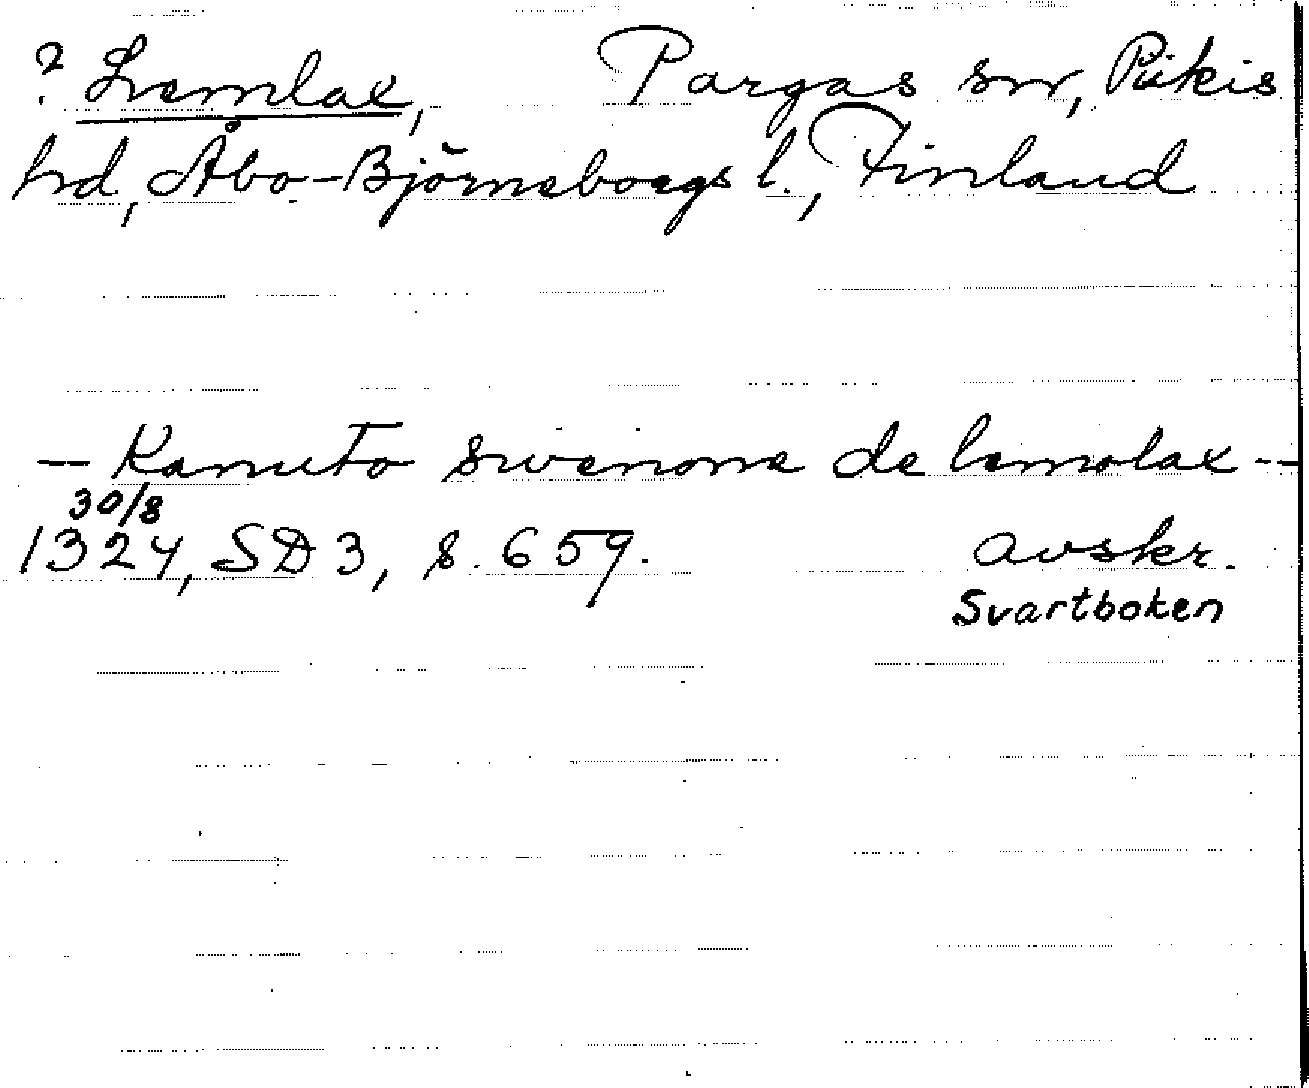 ? Lemlax, Pargas sn, Pikis
hd, Åbo-Björneborgs l., Finland
— Kanuto swenone de lemolax --
30/8
1324, SD 3, s. 659. avskr.
Svartboken